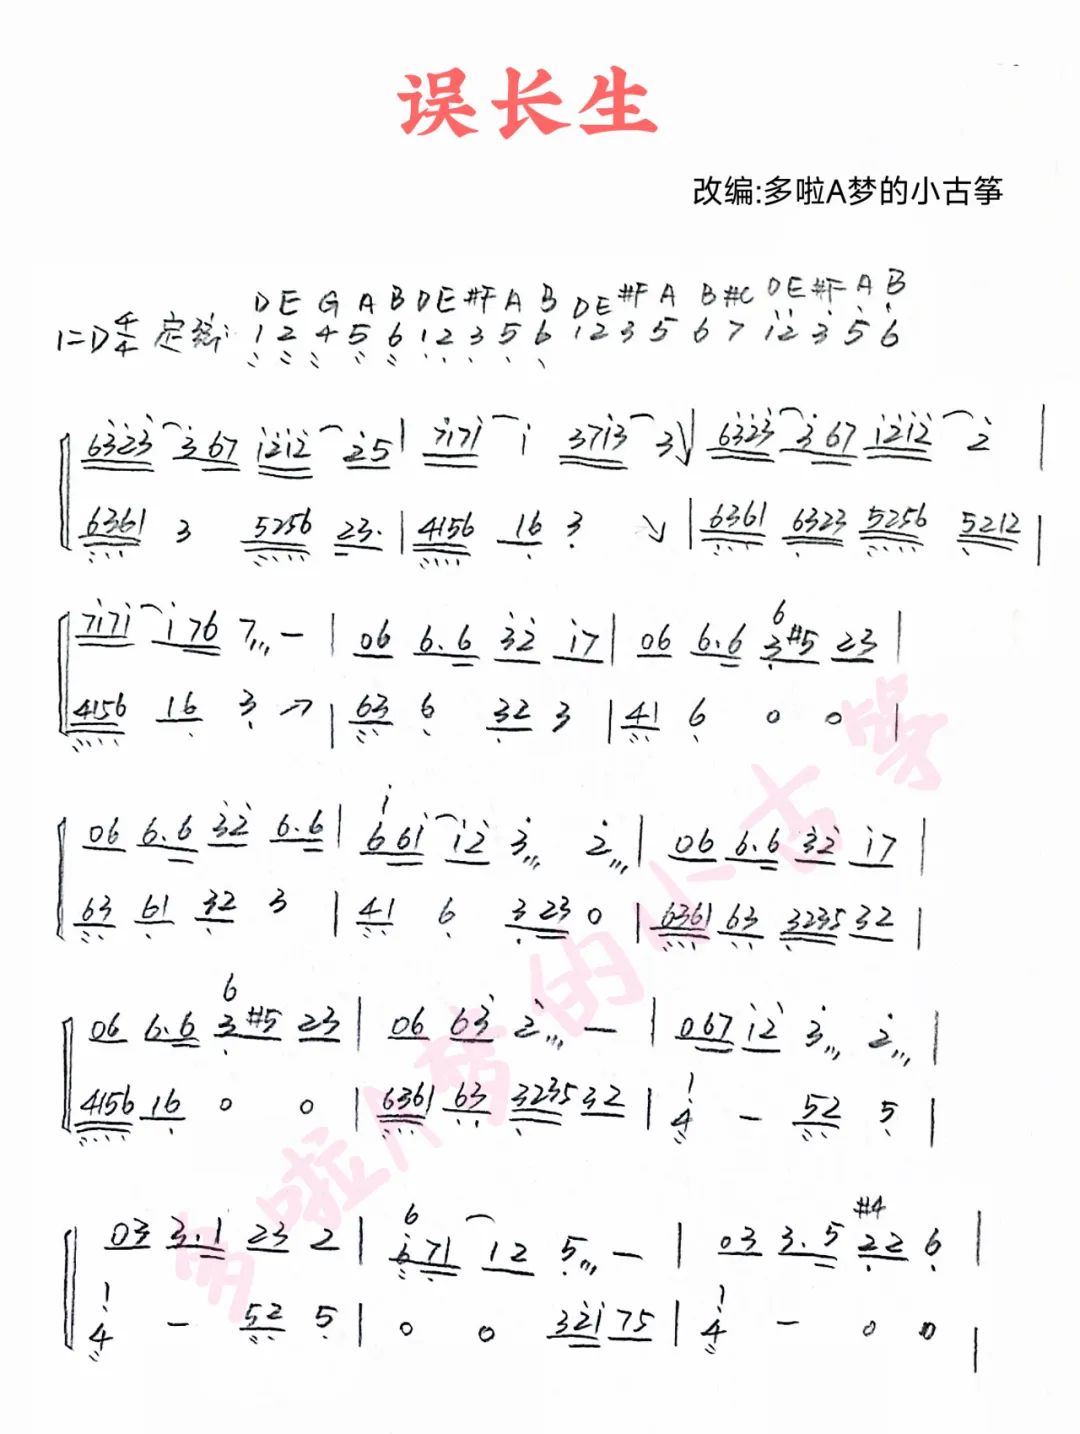 误长生
改编:多啦A梦的小古筝
D E G A B D E #F A B D E #F A B #C D E #F A B
1=D 4/4 定弦: 1 2 4 5 6 1 2 3 5 6 1 2 3 5 6 7 1 2 3 5 6
6323 3 67 1212 25 | 7171 1 3713 3 | 6323 3 67 1212 2 |
6361 3 5256 23. | 4156 16 3 | 6361 6323 5256 5212 |
7171 1 76 7 - | 06 6.6 32 17 | 06 6.6 6 3#5 23 |
4156 16 3 | 63 6 32 3 | 41 6 0 0 |
06 6.6 32 6.6 | 1 661 12 3 2 | 06 6.6 32 17 |
63 61 32 3 | 41 6 3 23 0 | 6361 63 3235 32 |
06 6.6 6 3#5 23 | 06 63 2 - | 067 12 3 2 |
4156 16 0 0 | 6361 63 3235 32 | 1 4 - 52 5 |
03 3.1 23 2 | 6 6 71 12 5 - | 03 3.5 #4 22 6 |
1 4 - 52 5 | 0 0 321 75 | 1 4 - 0 0
多啦A梦的小古筝